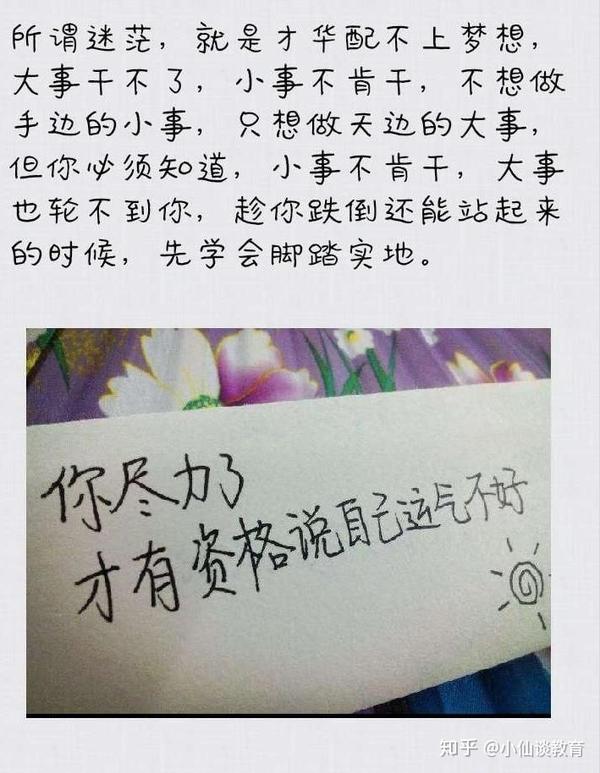 所谓迷茫，就是才华配不上梦想，
大事干不了，小事不肯干，不想做
手边的小事，只想做天边的大事，
但你必须知道，小事不肯干，大事
也轮不到你，趁你跌倒还能站起来
的时候，先学会脚踏实地。
你尽力了
才有资格说自己运气不好
知乎 @小仙谈教育